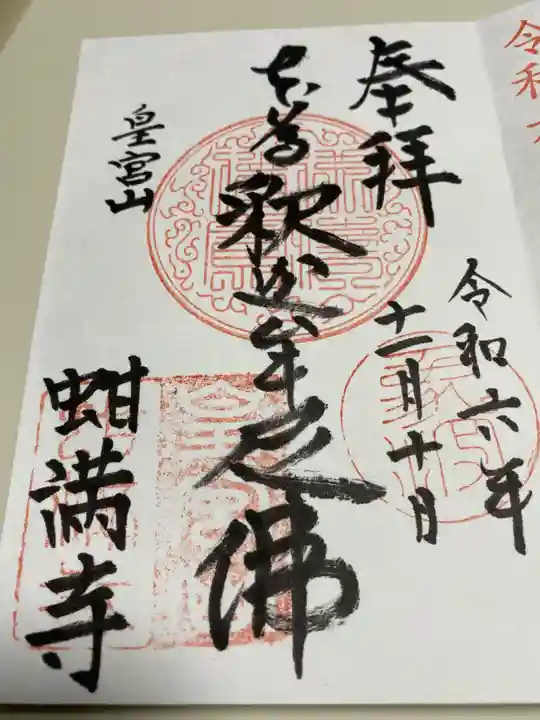 奉拝
令和六年
十一月十日
本尊釈迦牟尼佛
皇宮山
蚶満寺
令和六